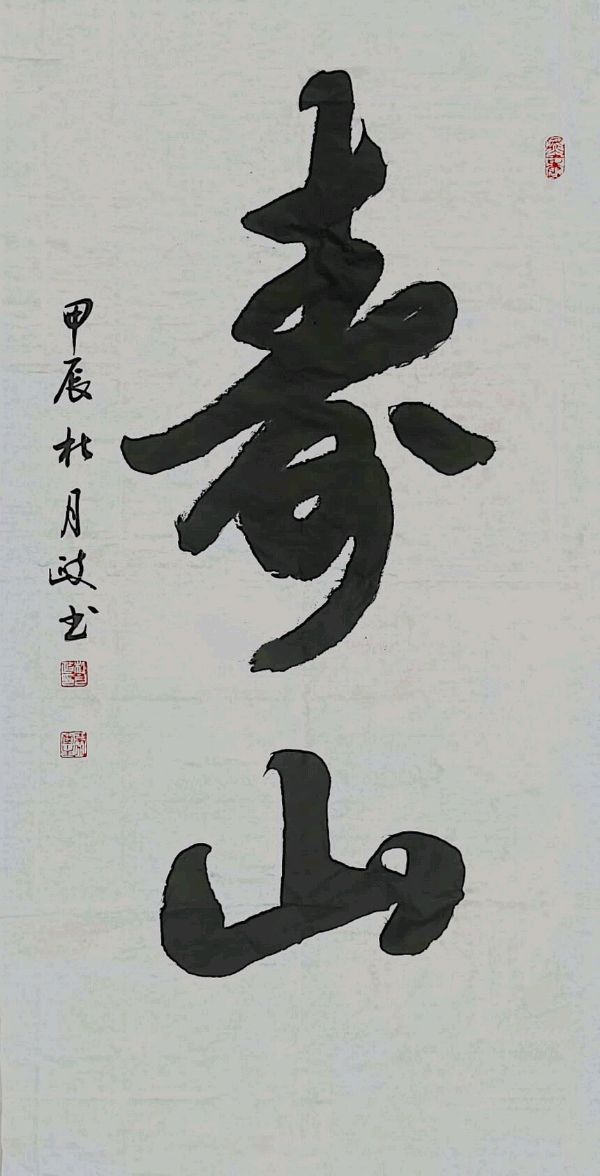 寿山
甲辰杜月政书